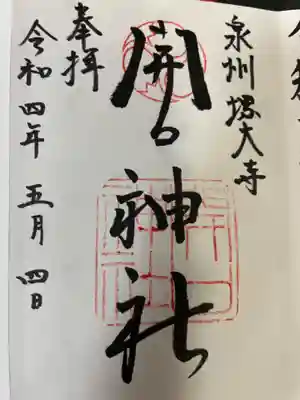 泉州堺大寺
開口神社
奉拝
令和四年 五月 四日